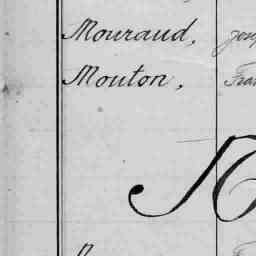 Mouraud,
Mouton, Fran
N